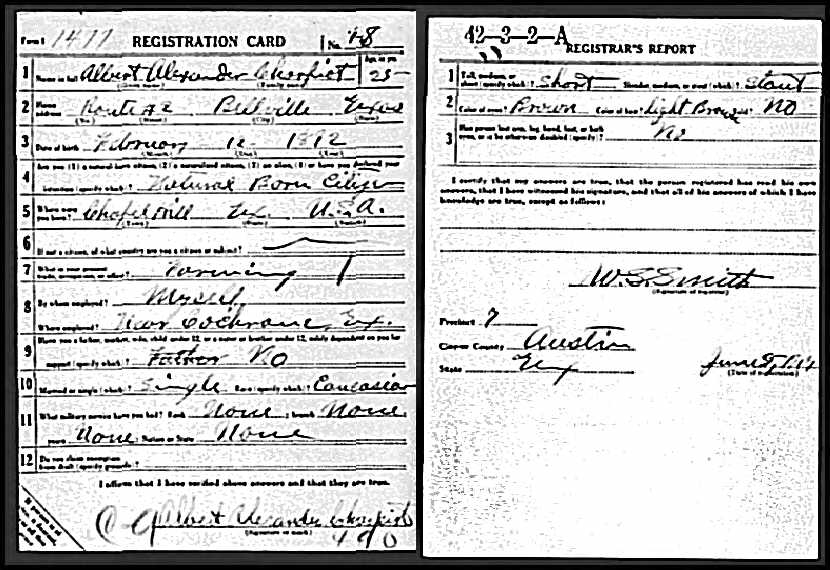 Form 1 1477 REGISTRATION CARD No. 48
1 Name in full Albert Alexander Age, in yrs. 25
2 Home address Route Bellville Texas
3 Date of birth February 12 1892
4 Are you (1) a natural born citizen, (2) a naturalized citizen, (3) an alien, (4) or have you declared your
intention (specify which)? Natural Born Citizen
5 Where were you born? Chapel Hill Tex U.S.A.
6 If not a citizen, of what country are you a citizen or subject?
7 What is your present trade, occupation, or office? Farming
8 By whom employed? Myself
Where employed? Near Cochrane, Tex.
9 Have you a father, mother, wife, child under 12, or a sister or brother under 12, solely dependent on you for
support (specify which)? Father No
10 Married or single (which)? Single Race (specify which)? Caucasian
11 What military service have you had? Rank None ; branch None ;
years None ; Nation or State None
12 Do you claim exemption
from draft (specify grounds)?
I affirm that I have verified above answers and that they are true.
Albert Alexander
(Signature or mark)
42-3-2-A
REGISTRAR'S REPORT
1 Tall, medium, or short (specify which)? Short Slender, medium, or stout (which)? Stout
2 Color of eyes? Brown Color of hair? light Brown Bald? No
3 Has person lost arm, leg, hand, foot, or both
eyes, or is he otherwise disabled (specify)? No
I certify that my answers are true, that the person registered has read his own
answers, that I have witnessed his signature, and that all of his answers of which I have
knowledge are true, except as follows:
W. S. Smith
(Signature of registrar)
Precinct 7
City or County Austin
State Tex June 5, 1917
(Date of registration)